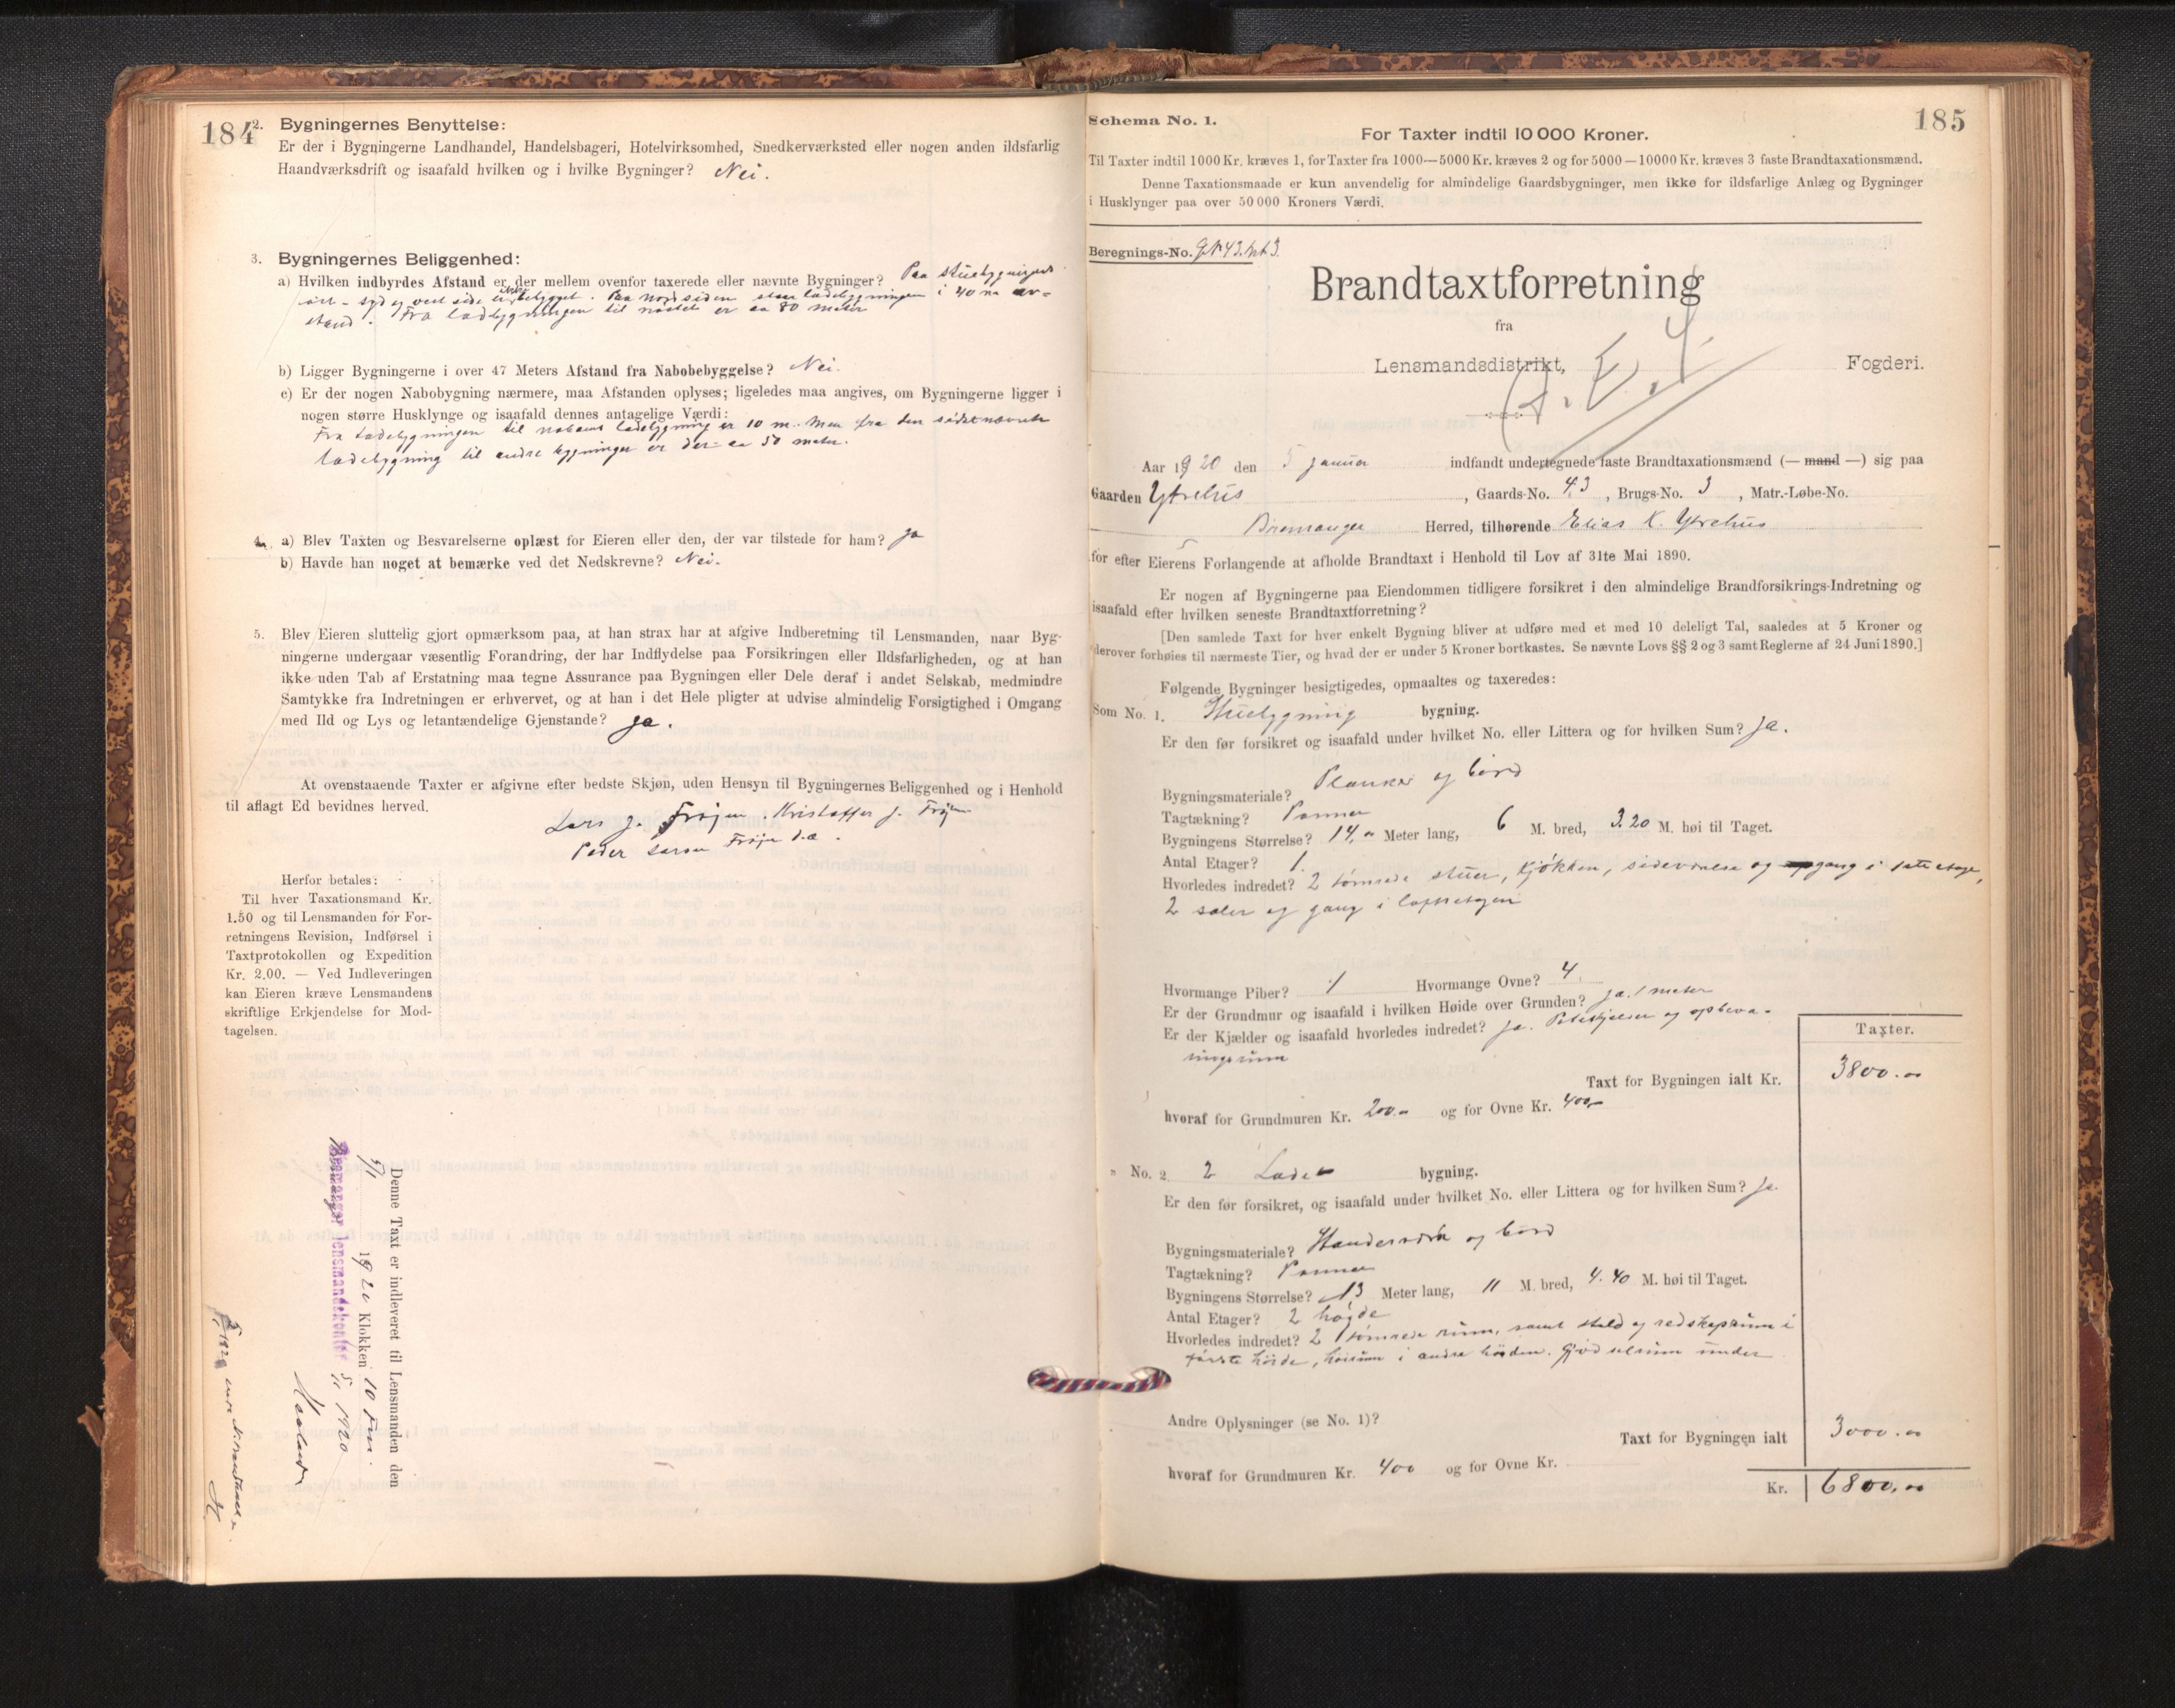 184
2. Bygningernes Benyttelse:
Er der i Bygningerne Landhandel, Handelsbageri, Hotelvirksomhed, Snedkerværksted eller nogen anden ildsfarlig
Haandværksdrift og isaafald hvilken og i hvilke Bygninger? Nei.
3. Bygningernes Beliggenhed:
a) Hvilken indbyrdes Afstand er der mellem ovenfor taxerede eller nævnte Bygninger? Paa stuebygnigens
öst - syd og vest side er intet bebygget. Paa nordsiden staar ladebygningen i 40 m av-
stand. Fra ladbygningen til nöstet er ca 80 meter
b) Ligger Bygningerne i over 47 Meters Afstand fra Nabobebyggelse? Nei.
c) Er der nogen Nabobygning nærmere, maa Afstanden oplyses; ligeledes maa angives, om Bygningerne ligger i
nogen større Husklynge og isaafald dennes antagelige Værdi:
Fra ladebygningen til naboens ladebygning er 10 m. Men fra den sidstnævnte
ladebygning til andre bygninger er der ca 50 meter.
4. a) Blev Taxten og Besvarelserne oplæst for Eieren eller den, der var tilstede for ham? Ja
b) Havde han noget at bemærke ved det Nedskrevne? Nei.
5. Blev Eieren sluttelig gjort opmærksom paa, at han strax har at afgive Indberetning til Lensmanden, naar Byg-
ningerne undergaar væsentlig Forandring, der har Indflydelse paa Forsikringen eller Ildsfarligheden, og at han
ikke uden Tab af Erstatning maa tegne Assurance paa Bygningen eller Dele deraf i andet Selskab, medmindre
Samtykke fra Indretningen er erhvervet, og at han i det Hele pligter at udvise almindelig Forsigtighed i Omgang
med Ild og Lys og letantændelige Gjenstande? ja.
At ovenstaaende Taxter er afgivne efter bedste Skjøn, uden Hensyn til Bygningernes Beliggenhed og i Henhold
til aflagt Ed bevidnes herved.
Lars J. Fröjen. Kristoffer J. Fröjen
Peder Larsen Fröjen
Herfor betales:
Til hver Taxationsmand Kr.
1.50 og til Lensmanden for For-
retningens Revision, Indførsel i
Taxtprotokollen og Expedition
Kr. 2.00. — Ved Indleveringen
kan Eieren kræve Lensmandens
skriftlige Erkjendelse for Mod-
tagelsen.
Denne Taxt er indleveret til Lensmanden den
5/1 1920 Klokken 10 Fm.
Bremanger lensmandskontor 5/1 1920
185
Schema No. 1.
For Taxter indtil 10 000 Kroner.
Til Taxter indtil 1000 Kr. kræves 1, for Taxter fra 1000—5000 Kr. kræves 2 og for 5000—10000 Kr. kræves 3 faste Brandtaxationsmænd.
Denne Taxationsmaade er kun anvendelig for almindelige Gaardsbygninger, men ikke for ildsfarlige Anlæg og Bygninger
i Husklynger paa over 50 000 Kroners Værdi.
Beregnings-No. GN 43. bn 3.
Brandtaxtforretning
fra
Lensmandsdistrikt, Fogderi.
Aar 1920 den 5 januar indfandt undertegnede faste Brandtaxationsmænd (— mand —) sig paa
Gaarden Ytrehus, Gaards-No. 43, Brugs-No. 3, Matr.-Løbe-No.
Bremanger Herred, tilhørende Elias K. Ytrehus
for efter Eierens Forlangende at afholde Brandtaxt i Henhold til Lov af 31te Mai 1890.
Er nogen af Bygningerne paa Eiendommen tidligere forsikret i den almindelige Brandforsikrings-Indretning og
isaafald efter hvilken seneste Brandtaxtforretning?
[Den samlede Taxt for hver enkelt Bygning bliver at udføre med et med 10 deleligt Tal, saaledes at 5 Kroner og
derover forhøies til nærmeste Tier, og hvad der er under 5 Kroner bortkastes. Se nævnte Lovs §§ 2 og 3 samt Reglerne af 24 Juni 1890.]
Følgende Bygninger besigtigedes, opmaaltes og taxeredes:
Som No. 1. Stuebygning bygning.
Er den før forsikret og isaafald under hvilket No. eller Littera og for hvilken Sum? Ja.
Bygningsmateriale? Planker og bord
Tagtækning? Panner
Bygningens Størrelse? 14,00 Meter lang, 6 M. bred, 3.20 M. høi til Taget.
Antal Etager? 1.
Hvorledes indredet? 2 tömrede stuer, Kjökken, sideværelse og gang i 1ste etage,
2 saler og gang i loftsetagen
Hvormange Piber? 1 Hvormange Ovne? 4
Er der Grundmur og isaafald i hvilken Høide over Grunden? Ja. 1 meter
Er der Kjælder og isaafald hvorledes indredet? Ja. Potetkjelder og opbeva-
ringsrum
Taxter.
Taxt for Bygningen ialt Kr. 3800.00
hvoraf for Grundmuren Kr. 200.00 og for Ovne Kr. 400,00
" No. 2. 2 Lade bygning.
Er den før forsikret, og isaafald under hvilket No. eller Littera og for hvilken Sum? Ja.
Bygningsmateriale? Standerværk og bord
Tagtækning? Panner
Bygningens Størrelse? 13 Meter lang, 11 M. bred, 4.40 M. høi til Taget.
Antal Etager? 2 högde
Hvorledes indredet? 2 tömrede rum, samt stald og redskapsrum i
förste höide, höirum i andre höiden. Gjödselrum under
Andre Oplysninger (se No. 1)?
Taxt for Bygningen ialt 3000.00
hvoraf for Grundmuren Kr. 400 og for Ovne Kr.
Kr. 6800.00